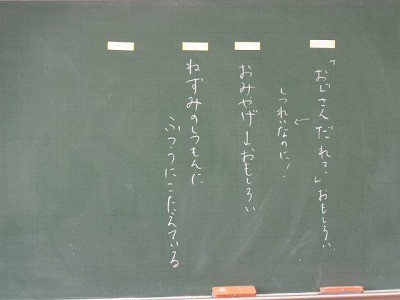 「おじさんだれ?」おもしろい。
しつれいなのに!
おみやげ→おもしろい
ねずみのしつもんに
ふつうにこたえている